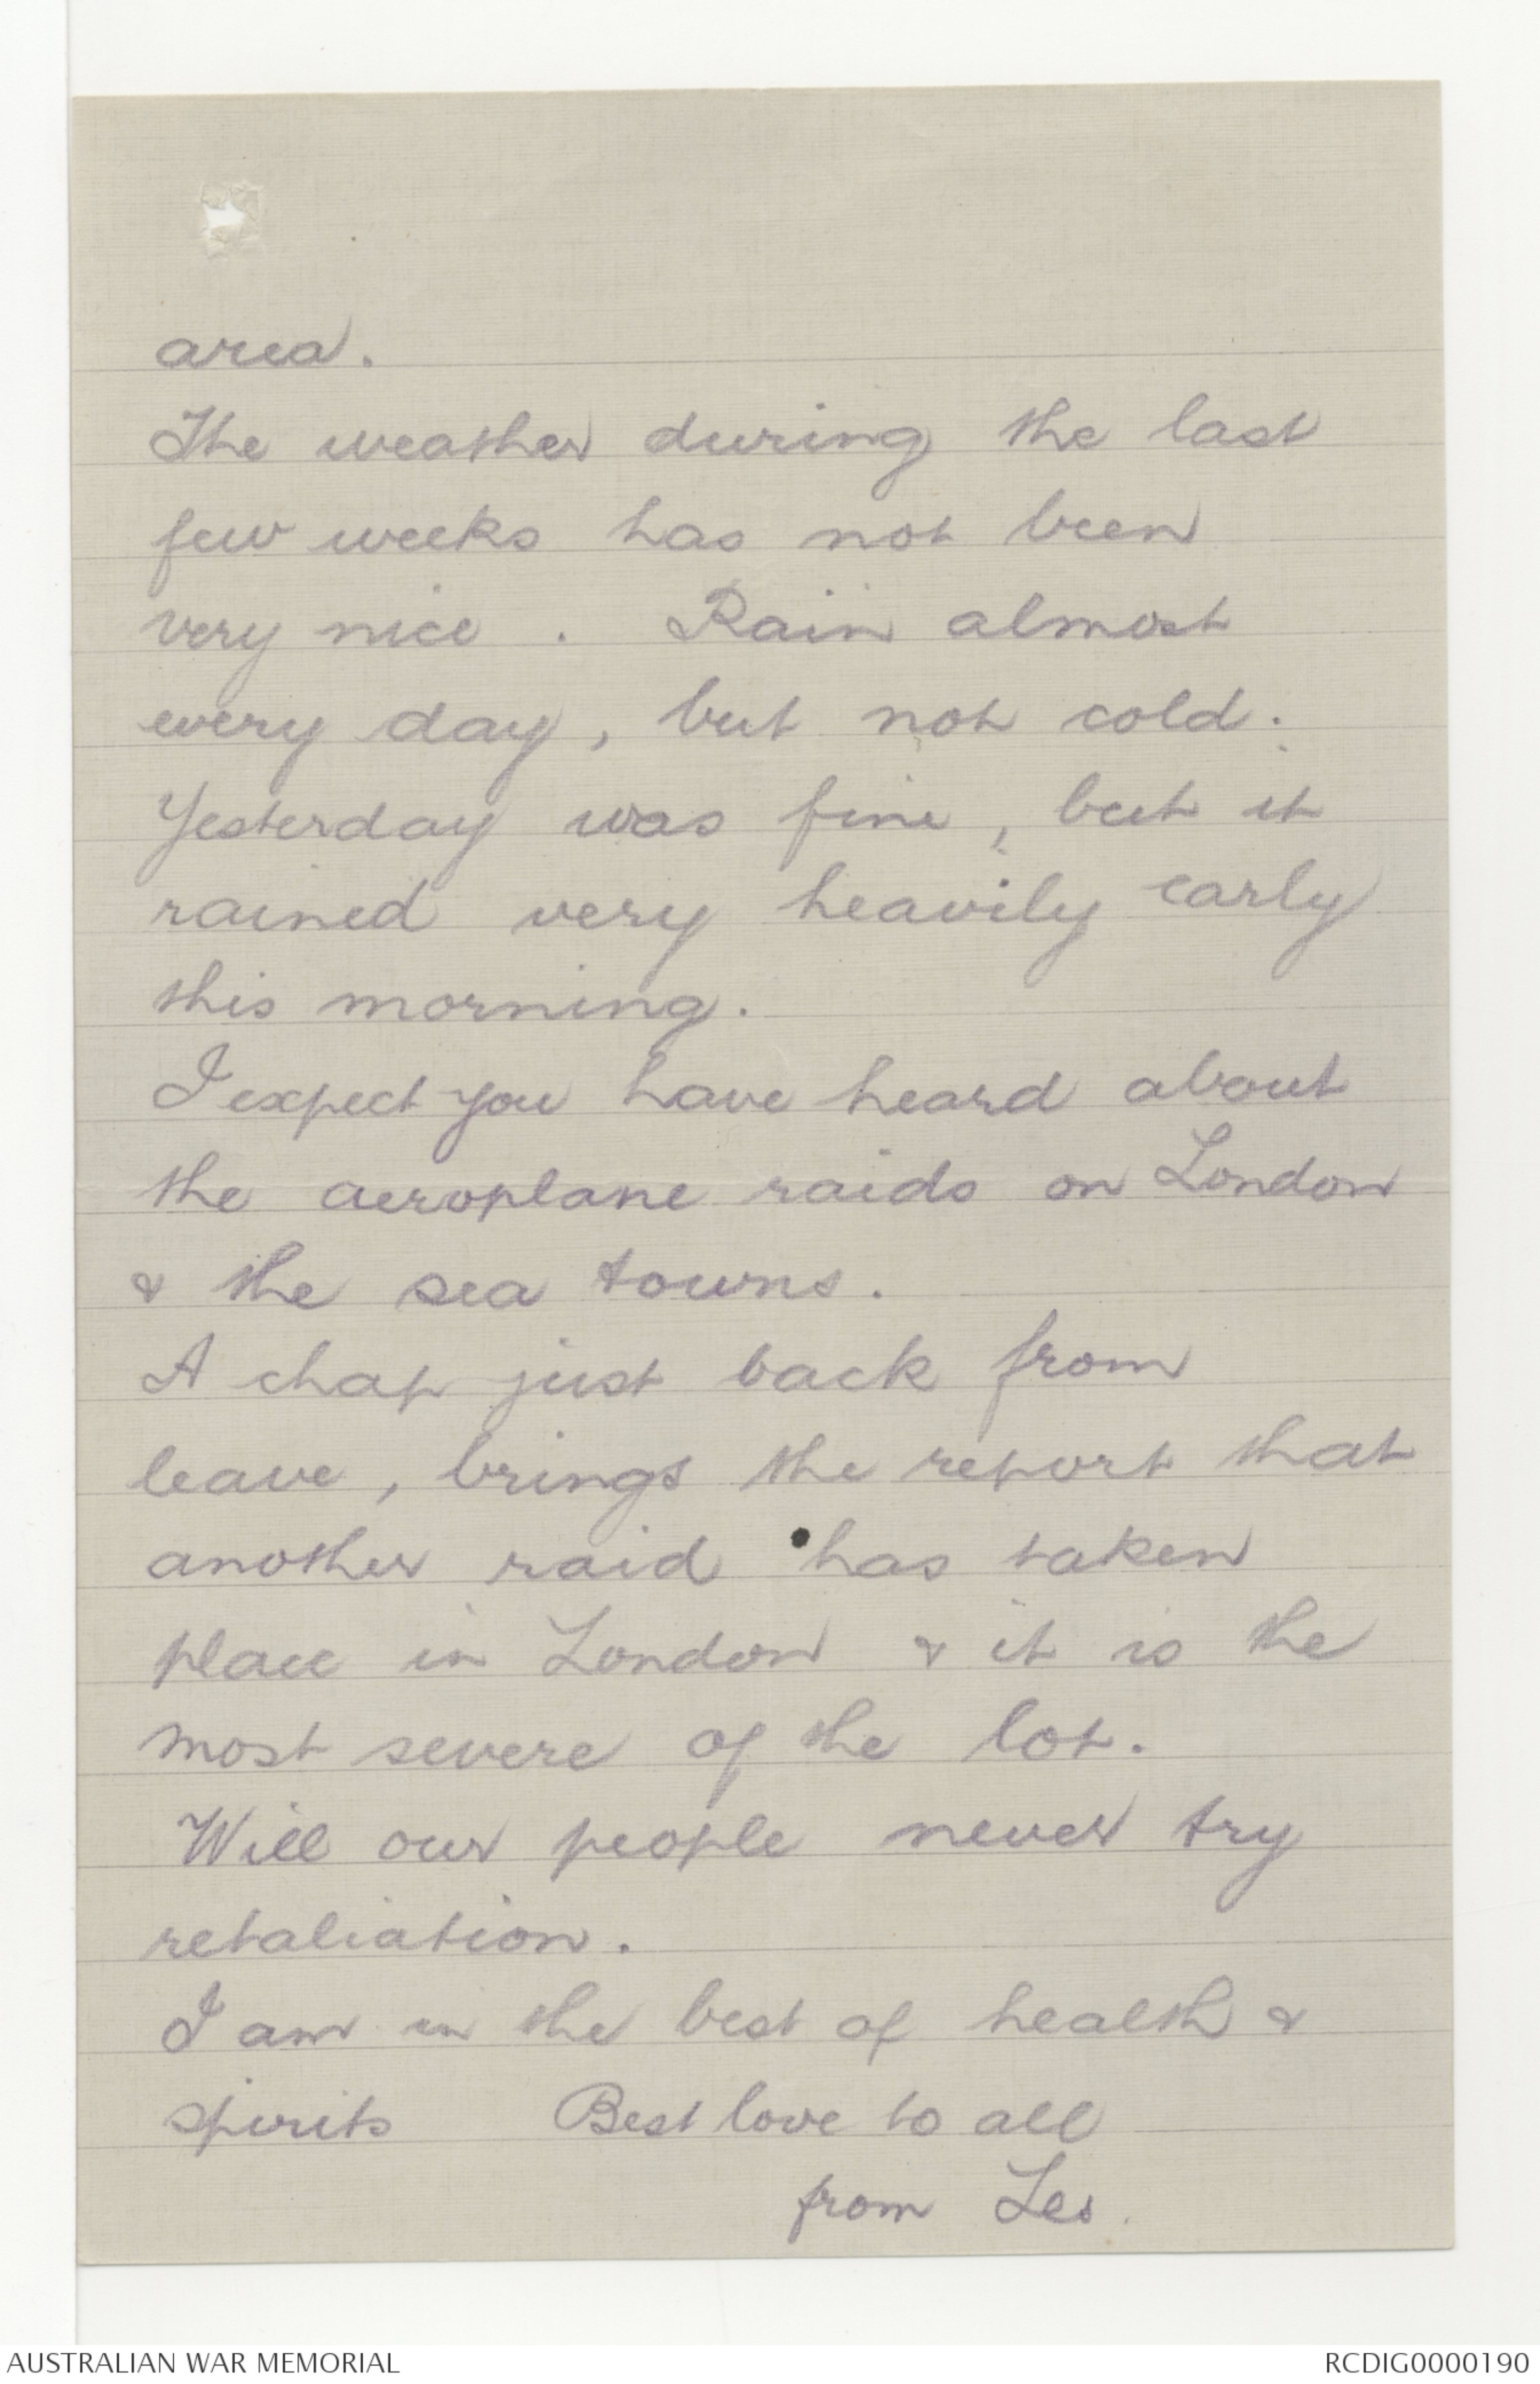 area.
The weather during the last
few weeks has not been
very nice. Rain almost
every day, but not cold.
Yesterday was fine, but it
rained very heavily early
this morning.
I expect you have heard about
the aeroplane raids on London
& the sea towns.
A chap just back from
leave, brings the report that
another raid has taken
place in London & it is the
most severe of the lot.
Will our people never try
retaliation.
I am in the best of health &
spirits Best love to all
from Les.
AUSTRALIAN WAR MEMORIAL RCDIG0000190